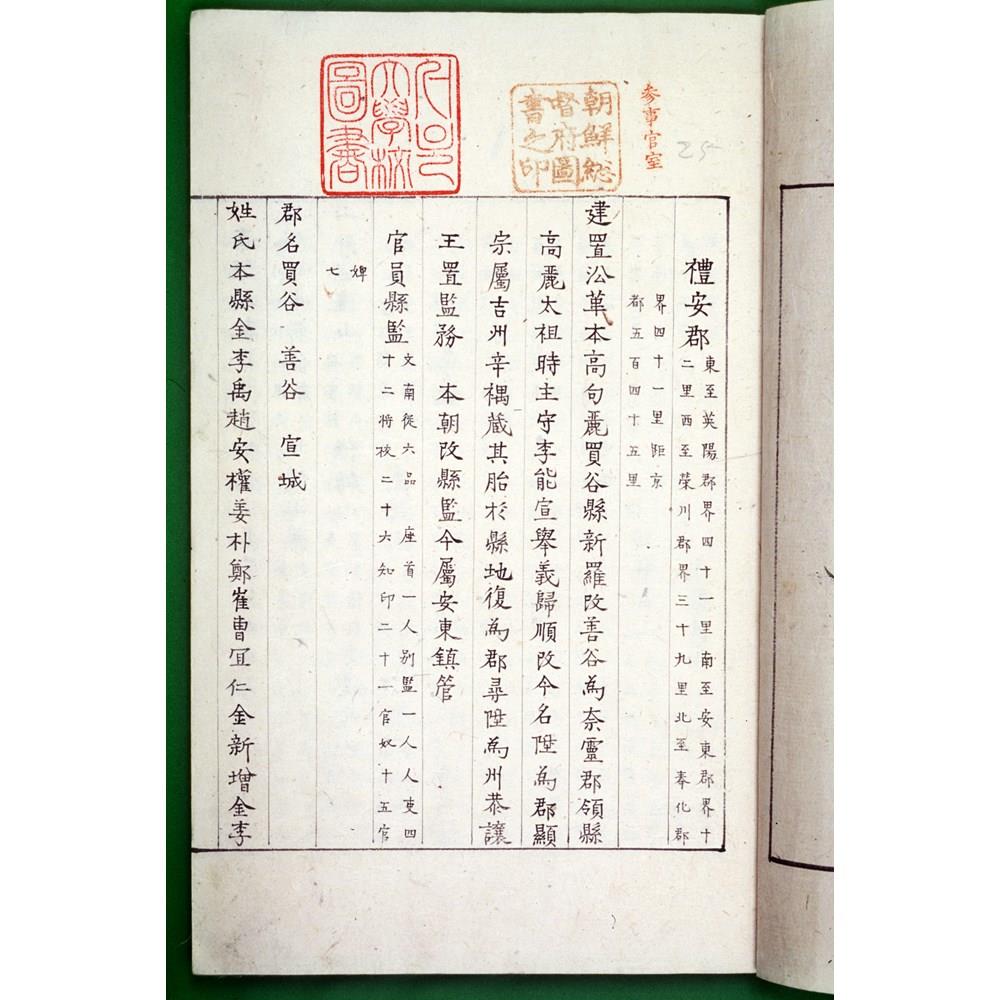 参事官室
25
朝鮮総
督府圖
書之印
서울
大學校
圖書
禮安郡 東至英陽郡界四十一里南至安東郡界十
二里西至榮川郡界三十九里北至奉化郡
界四十一里距京
都五百四十五里
建置沿革本高句麗買谷縣新羅改善谷為奈靈郡領縣
高麗太祖時主守李能宣舉義歸順改今名陞為郡顯
宗屬吉州辛禑藏其胎於縣地復為郡尋陞為州恭讓
王置監務 本朝改縣監今屬安東鎮管
官員縣監 文南從六品 座首一人別監一人人吏四
十二將校二十六知印二十一官奴十五官
婢
七
郡名買谷 善谷 宣城
姓氏本縣金李禹趙安權姜朴鄭崔曹冝仁金新增金李